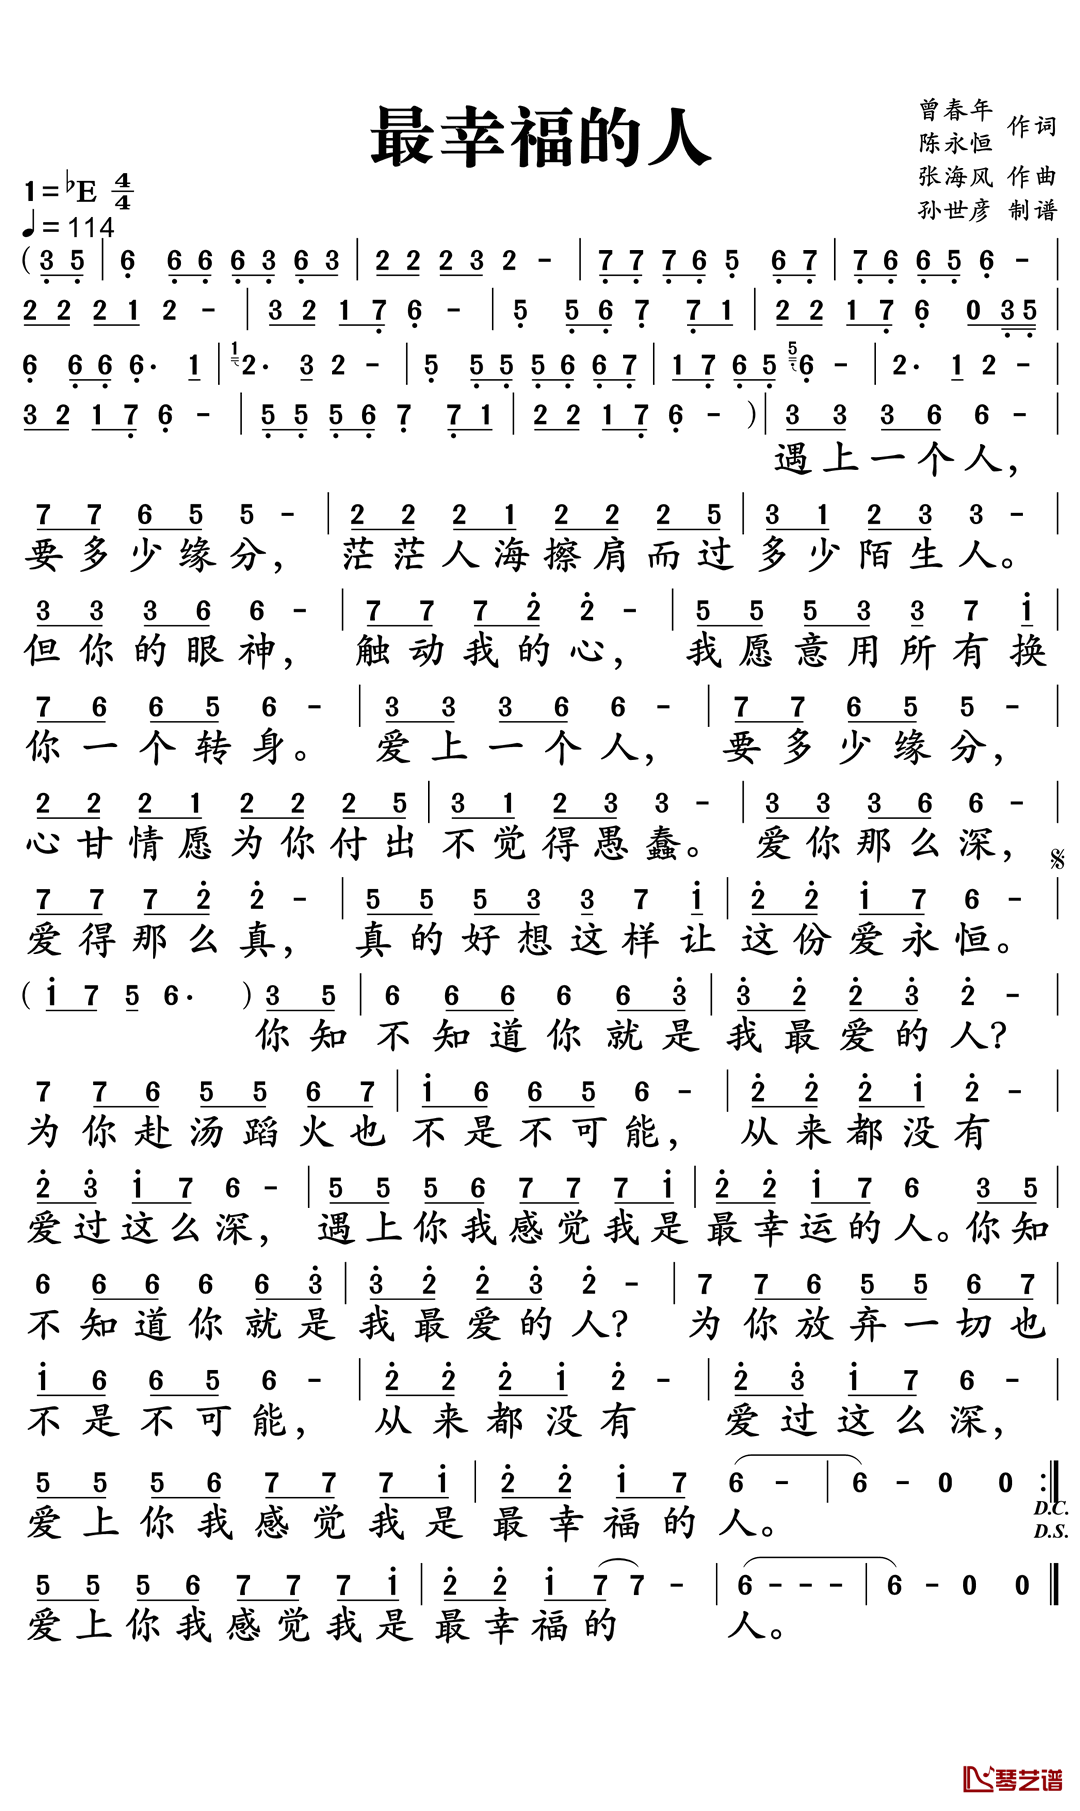 最幸福的人
曾春年
陈永恒 作词
张海风 作曲
孙世彦 制谱
1=♭E 4/4
♩=114
( 3 5 | 6 6 6 6 3 6 3 | 2 2 2 3 2 - | 7 7 7 6 5 6 7 | 7 6 6 5 6 - |
2 2 2 1 2 - | 3 2 1 7 6 - | 5 5 6 7 7 1 | 2 2 1 7 6 0 3 5 |
6 6 6 6· 1 | 1 2· 3 2 - | 5 5 5 5 6 6 7 | 1 7 6 5 5 6 - | 2· 1 2 - |
3 2 1 7 6 - | 5 5 5 6 7 7 1 | 2 2 1 7 6 - ) | 3 3 3 6 6 - |
遇上一个人，
7 7 6 5 5 - | 2 2 2 1 2 2 2 5 | 3 1 2 3 3 - |
要多少缘分，茫茫人海擦肩而过多少陌生人。
3 3 3 6 6 - | 7 7 7 2 2 - | 5 5 5 3 3 7 1 |
但你的眼神，触动我的心，我愿意用所有换
7 6 6 5 6 - | 3 3 3 6 6 - | 7 7 6 5 5 - |
你一个转身。爱上一个人，要多少缘分，
2 2 2 1 2 2 2 5 | 3 1 2 3 3 - | 3 3 3 6 6 - |
心甘情愿为你付出不觉得愚蠢。爱你那么深，
7 7 7 2 2 - | 5 5 5 3 3 7 1 | 2 2 1 7 6 - |
爱得那么真，真的好想这样让这份爱永恒。
( 1 7 5 6· ) 3 5 | 6 6 6 6 6 3 | 3 2 2 3 2 - |
你知不知道你就是我最爱的人?
7 7 6 5 5 6 7 | 1 6 6 5 6 - | 2 2 2 1 2 - |
为你赴汤蹈火也不是不可能，从来都没有
2 3 1 7 6 - | 5 5 5 6 7 7 7 1 | 2 2 1 7 6 3 5 |
爱过这么深，遇上你我感觉我是最幸运的人。你知
6 6 6 6 6 3 | 3 2 2 3 2 - | 7 7 6 5 5 6 7 |
不知道你就是我最爱的人?为你放弃一切也
1 6 6 5 6 - | 2 2 2 1 2 - | 2 3 1 7 6 - |
不是不可能，从来都没有爱过这么深，
5 5 5 6 7 7 7 1 | 2 2 1 7 6 - | 6 - 0 0 :|
爱上你我感觉我是最幸福的人。
D.C.
D.S.
5 5 5 6 7 7 7 1 | 2 2 1 7 7 - | 6 - - - | 6 - 0 0 ‖
爱上你我感觉我是最幸福的人。
琴艺谱